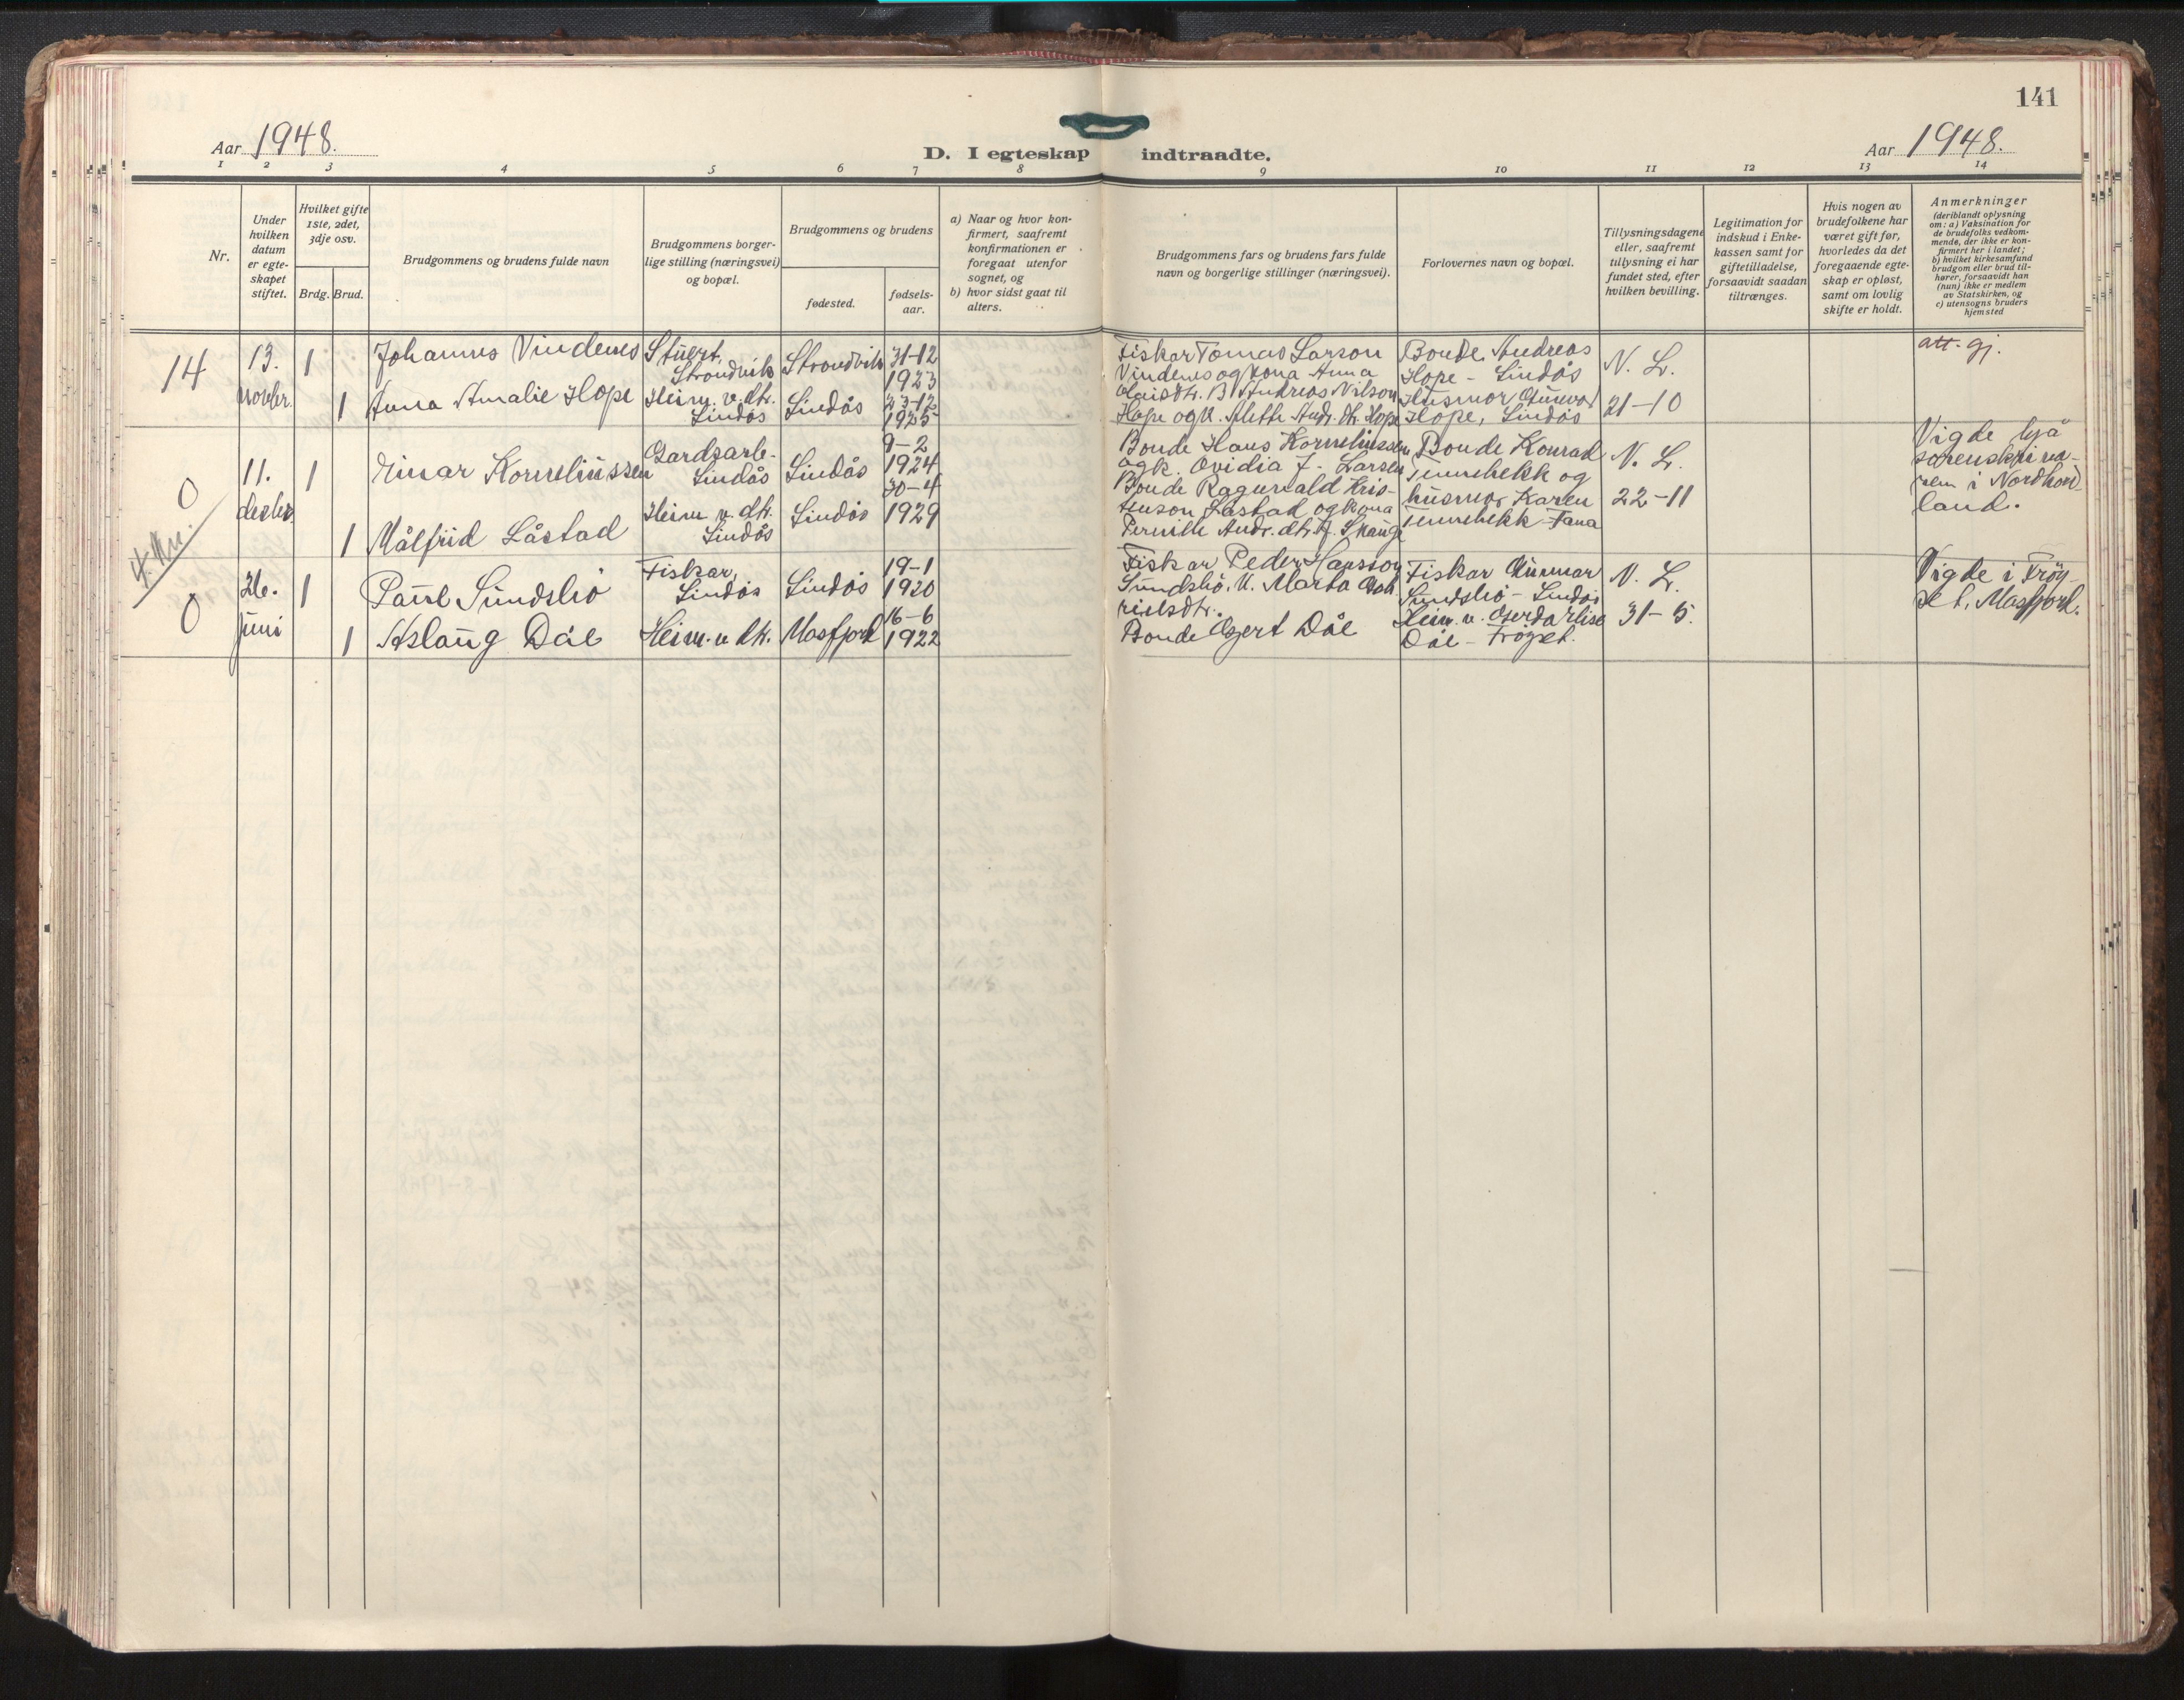 141
Aar 1948.
D. I egteskap indtraadte.
Aar 1948.
1 2 3 4 5 6 7 8 9 10 11 12 13 14
Nr.
Under
hvilken
datum
er egte-
skapet
stiftet.
Hvilket gifte
1ste, 2det,
3dje osv.
Brdg. Brud.
Brudgommens og brudens fulde navn
Brudgommens borger-
lige stilling (næringsvei)
og bopæl.
Brudgommens og brudens
fødested.
fødsels-
aar.
a) Naar og hvor kon-
firmert, saafremt
konfirmationen er
foregaat utenfor
sognet, og
b) hvor sidst gaat til
alters.
Brudgommens fars og brudens fars fulde
navn og borgerlige stillinger (næringsvei).
Forlovernes navn og bopæl.
Tillysningsdagene
eller, saafremt
tillysning ei har
fundet sted, efter
hvilken bevilling.
Legitimation for
indskud i Enke-
kassen samt for
giftetilladelse,
forsaavidt saadan
tiltrænges.
Hvis nogen av
brudefolkene har
været gift før,
hvorledes da det
foregaaende egte-
skap er opløst,
samt om lovlig
skifte er holdt.
Anmerkninger
(deriblandt oplysning
om: a) Vaksination for
de brudefolks vedkom-
mende, der ikke er kon-
firmert her i landet;
b) hvilket kirkesamfund
brudgom eller brud til-
hører, forsaavidt han
(hun) ikke er medlem
av Statskirken, og
c) utensogns bruders
hjemsted
14
13.
novbr.
1
Johannes Vindenes
Stuert.
Strandvik
Strandvik
31-12
1923
1
Anna Amalie Hope
Heim. v. dtr.
Lindås
Lindås
23-12
1925
Fiskar Tomas Larson
Vindenes og kona Anna
B. Andreas Nilson
Hope og k. Alette Andr. dtr. Hope
Bonde Andreas
Hope - Lindås
Husmor Gunvor
Hope, Lindås
N. L.
21-10
att. gj.
0
11.
desbr.
1
Einar Korneliussen
Gardsarb-
Lindås
Lindås
9-2
1924
1
Målfrid Låstad
Heim v. dtr.
Lindås
Lindås
30-4
1929
Bonde Hans Korneliussen
og k. Ovidia J. Larsen
Bonde Ragnvald Kris-
tenson Låstad og kona
Pernille Andr. dtr. f. Skauge
Bonde Konrad
Tennebekk og
husmor Karen
Tennebekk Fana
N. L.
22-11
Vigde hjå
sorenskriva-
ren i Nordhord-
land.
0
26.
juni
1
Paul Sundsbø
Fiskar,
Lindås
Lindås
19-1
1920
1
Aslaug Dåe
Heim. v dtr.
Masfjord
16-6
1922
Fiskar Peder Hansson
Sundsbø. U. Marta Gab
rielsdtr.
Bonde Asgert Dåe
Fiskar Gunnar
Sundsbø - Lindås
Heim. v. Gerda Elise
Dåe - Frøyset.
N. L.
31-5.
Vigde i Frøy-
set, Masfjord.